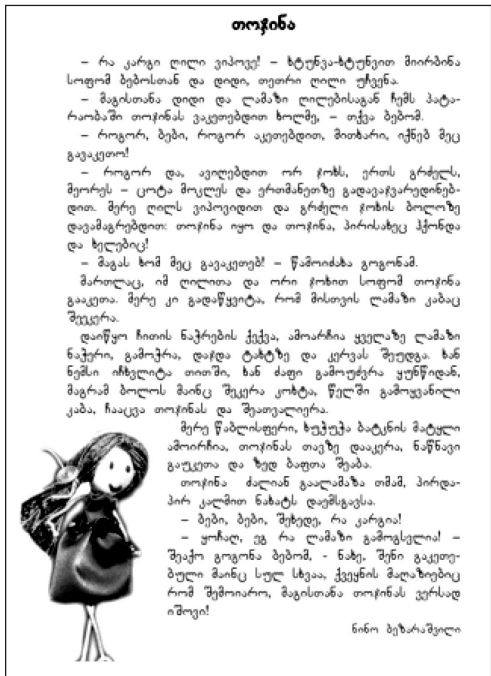 თოჯინა
– რა კარგი ღილი ვიპოვე! – ხტუნვა-ხტუნვით მიირბინა
სოფომ ბებოსთან და დიდი, თეთრი ღილი უჩვენა.
– მაგისთანა დიდი და ლამაზი ღილებისაგან ჩემს პატა-
რაობაში თოჯინას ვაკეთებდით ხოლმე, – თქვა ბებომ.
– როგორ, ბები, როგორ აკეთებდით, მითხარი, იქნებ მეც
გავაკეთო!
– როგორ და, ავიღებდით ორ ჯოხს, ერთს გრძელს,
მეორეს – ცოტა მოკლეს და ერთმანეთზე გადავაჯვარედინებ-
დით. მერე ღილს ვიპოვიდით და გრძელი ჯოხის ბოლოზე
დავამაგრებდით: თოჯინა იყო და თოჯინა, პირისახეც ჰქონდა
და ხელებიც!
– მაგას ხომ მეც გავაკეთებ! – წამოიძახა გოგონამ.
მართლაც, იმ ღილითა და ორი ჯოხით სოფომ თოჯინა
გააკეთა. მერე კი გადაწყვიტა, რომ მისთვის ლამაზი კაბაც
შეეკერა.
დაიწყო ჩითის ნაჭრების ქექვა, ამოარჩია ყველაზე ლამაზი
ნაჭერი, გამოჭრა, დაჯდა ტახტზე და კერვას შეუდგა. ხან
ნემსი იჩხვლიტა თითში, ხან ძაფი გამოუძვრა ყუნწიდან,
მაგრამ ბოლოს მაინც შეკერა კოხტა, წელში გამოყვანილი
კაბა, ჩააცვა თოჯინას და შეათვალიერა.
მერე წაბლისფერი, ხუჭუჭა ბატკნის მატყლი
ამოირჩია, თოჯინას თავზე დააკერა, ნაწნავი
გაუკეთა და ზედ ბაფთა შეაბა.
თოჯინა ძალიან გაალამაზა თმამ, პირდა-
პირ კალმით ნახატს დაემსგავსა.
– ბები, ბები, შეხედე, რა კარგია!
– ყოჩაღ, ეგ რა ლამაზი გამოგსვლია! –
შეაქო გოგონა ბებომ, - ნახე, შენი გაკეთე-
ბული მაინც სულ სხვაა, ქვეყნის მაღაზიებიც
რომ შემოიარო, მაგისთანა თოჯინას ვერსად
იშოვი!
ნინო ბეზარაშვილი